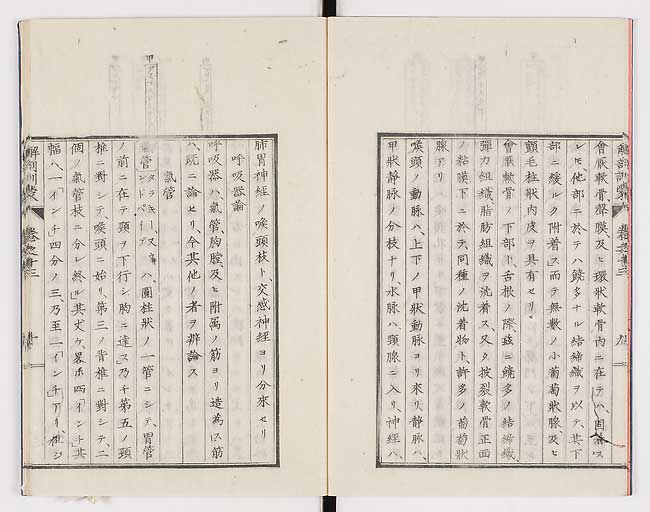 會厭軟骨、聲膜、及ヒ環狀軟骨内ニ在テハ、固着ス
レヒ他部ニ於テハ饒多ナル結締織ヲ以テ、其下
部ニ緩ルク附着ス而テ無數ノ小葡萄狀腺及ヒ
顫毛柱狀内皮ヲ具有セリ
會厭軟骨ノ下部ト舌根ノ際、玆ニ饒多ノ結締織、
彈力組織、脂肪組織ヲ沈着ス、又タ披裂軟骨正面
ノ粘膜下ニ於テ、同種ノ沈着物ト、許多ノ葡萄狀
腺アリ
喉頭ノ動脈ハ、上下ノ甲狀動脈ヨリ來リ、靜脈ハ、
甲狀靜脈ノ分枝ナリ、水脈ハ、頸腺ニ入リ、神經ハ、
解剖訓蒙
卷之廿三
九
肺胃神經ノ喉頭枝ト交感神經ヨリ分來セリ
呼吸器論
呼吸器ハ、氣管、胸膛、及ヒ附属ノ筋ヨリ造爲ス、筋
ハ、既ニ論セリ、今其他ノ者ヲ辨論ス
氣管
氣管ハ、圓柱狀ノ一管ニシテ、胃管
ノ前ニ在テ頸ヲ下行シ胸ニ達ス乃チ第五ノ頸
椎ニ對シテ、喉頭ニ始リ、第三ノ背椎ニ對シテ、二
個ノ氣管枝ニ分レ終ル其丈ケ、畧ホ四「インチ」其
幅ハ一「インチ」四分ノ三、乃至一「インチ」アリ、但シ
解剖訓蒙
卷之廿三